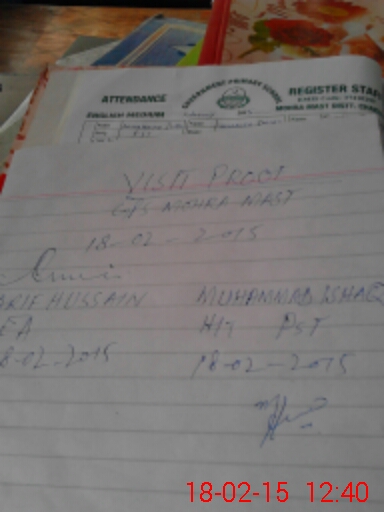 ATTENDANCE
GOVERNMENT PRIMARY SCHOOL
REGISTER STAFF
ENGLISH MEDIUM
MOHRA MAST DISTT.
VISIT PROOF
GPS MOHRA MAST
18-02-2015
ARIF HUSSAIN MUHAMMAD ISHAQ
EA H/T PST
8-02-2015 18-02-2015
18-02-15 12:40